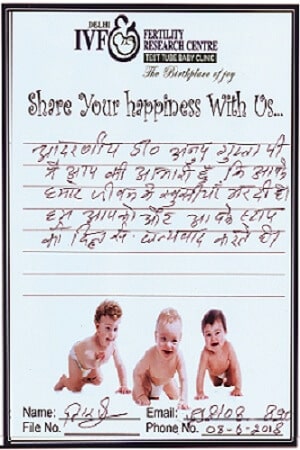 DELHI
IVF & FERTILITY
RESEARCH CENTRE
TEST TUBE BABY CLINIC
The Birthplace of joy
Share Your happiness With Us...
आदरणीय डा० अनुप गुप्ता जी
मै आप की आभारी हुँ कि आपने
हमारे जीवन मे खुशीयाँ भर दी है।
हम आपको और आपके स्टाप
को दिल से धन्यवाद करते है।
Name:
Email:
File No.
Phone No. 08-6-2018